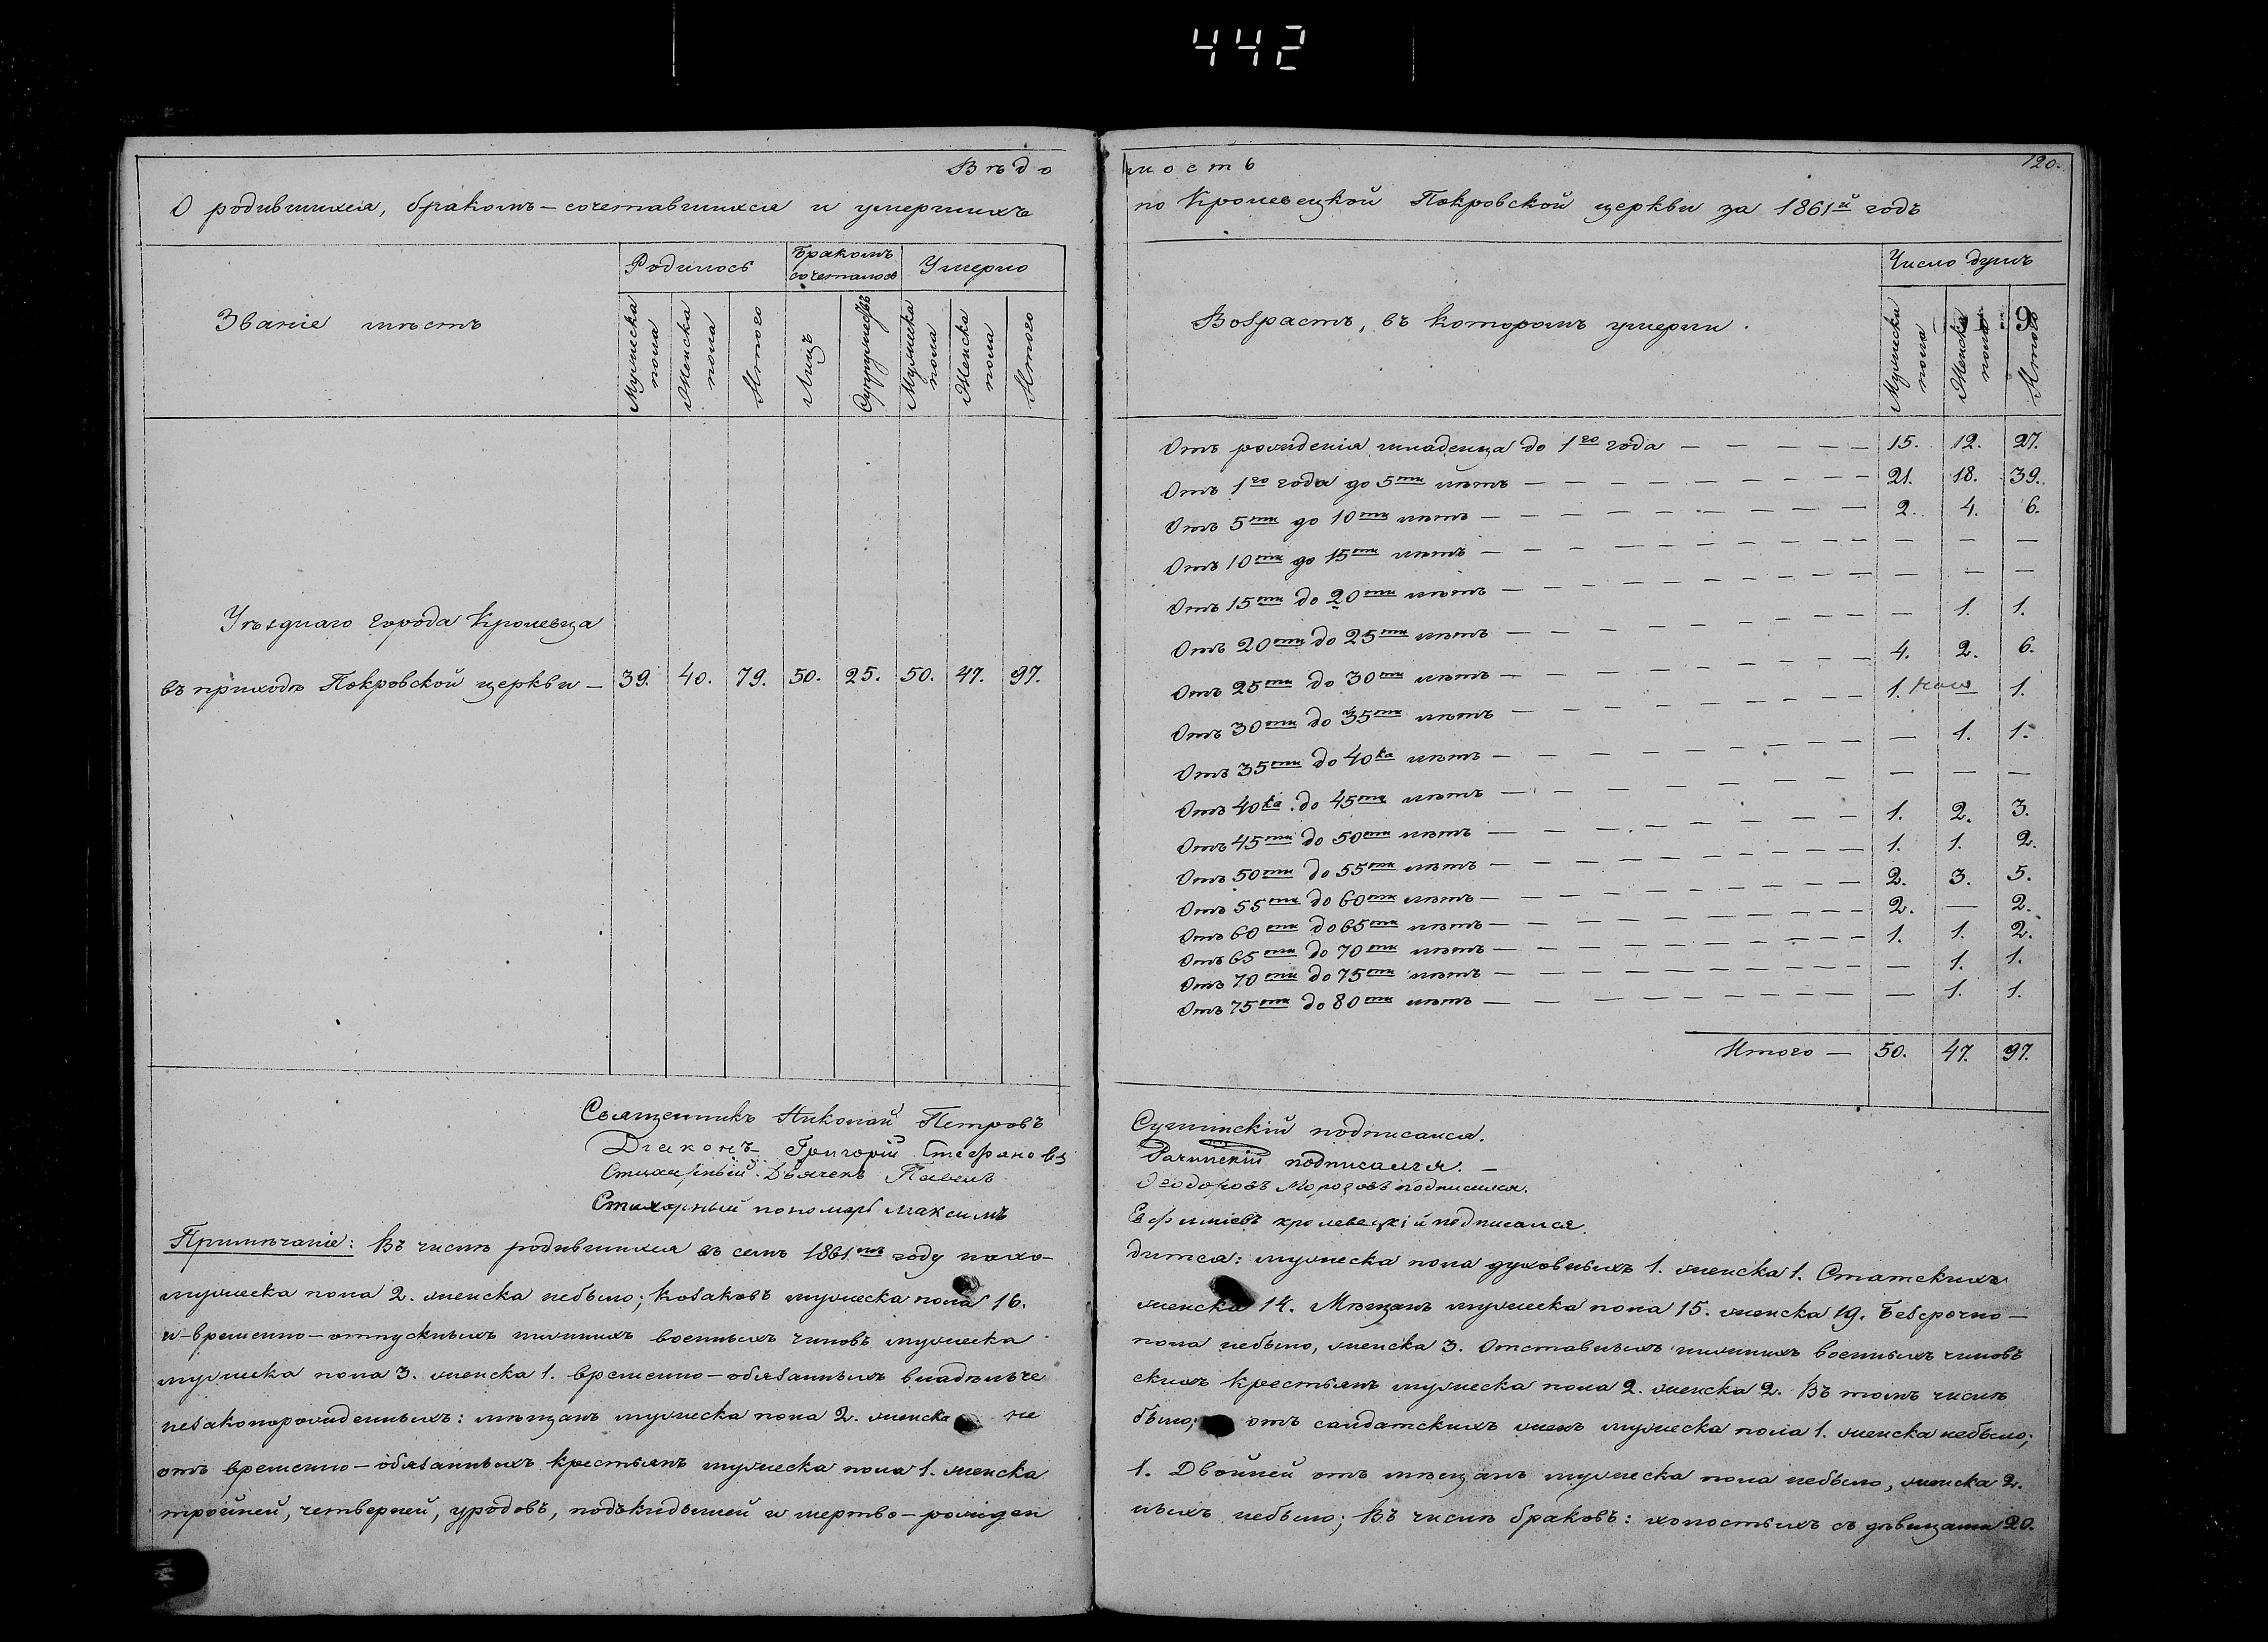 442
Вѣдо
О родившихся, бракомъ-сочетавшихся и умершихъ
Званіе мѣстъ
Родилось
Бракомъ сочеталось
Умерло
Мужеска пола
Женска пола
Итого
Лицъ
Супружествъ
Мужеска пола
Женска пола
Итого
Уѣзднаго города Кролевца
въ приходѣ Покровской церкви — 39. 40. 79. 50. 25. 50. 47. 97.
Священникъ Николай Петровъ
Діаконъ Григорій Стефановъ
Стихарный Дьячекъ Павелъ
Стихарный пономарь Максимъ
Примѣчаніе: Въ числѣ родившихся въ семъ 1861мъ году нахо-
мужеска пола 2. женска небыло; козаковъ мужеска пола 16.
и-временно-отпускныхъ нижнихъ военныхъ чиновъ мужеска
мужеска пола 3. женска 1. временно-обязанныхъ владѣльче
незаконорожденныхъ: мѣщанъ мужеска пола 2. женска не
отъ временно-обязанныхъ крестьянъ мужеска пола 1. женска
тройней, четверней, уродовъ, подъкидышей и мертво-рожден
мость
120.
по Кролевецкой Покровской церкви за 1861й годъ
Возрастъ, въ которомъ умерли.
Число душъ
Мужеска пола
Женска пола
Итого
9
Отъ рожденія младенца до 1го года — 15. 12. 27.
Отъ 1го года до 5ти лѣтъ — 21. 18. 39.
Отъ 5ти до 10ти лѣтъ — 2. 4. 6.
Отъ 10ти до 15ти лѣтъ — — — —
Отъ 15ти до 20ти лѣтъ — — — —
Отъ 20ти до 25ти лѣтъ — — 1. 1.
Отъ 25ти до 30ти лѣтъ — 4. 2. 6.
Отъ 30ти до 35ти лѣтъ — 1. 1.
Отъ 35ти до 40ка лѣтъ — — 1. 1.
Отъ 40ка до 45ти лѣтъ — — — —
Отъ 45ти до 50ти лѣтъ — 1. 2. 3.
Отъ 50ти до 55ти лѣтъ — 1. 1. 2.
Отъ 55ти до 60ти лѣтъ — 2. 3. 5.
Отъ 60ти до 65ти лѣтъ — 2. — 2.
Отъ 65ти до 70ти лѣтъ — 1. 1. 2.
Отъ 70ти до 75ти лѣтъ — — 1. 1.
Отъ 75ти до 80ти лѣтъ — — 1. 1.
Итого — 50. 47. 97.
подписался.
подписался. —
Ѳеодоровъ Морозовъ подписался.
Ефиміевъ кролевецкій подписался
дится: мужеска пола духовныхъ 1. женска 1. Статскихъ
женска 14. Мѣщанъ мужеска пола 15. женска 19. Безсрочно—
пола небыло, женска 3. Отставныхъ нижнихъ военныхъ чиновъ
скихъ крестьянъ мужеска пола 2. женска 2. Въ томъ числѣ
было; отъ салдатскихъ женъ мужеска пола 1. женска небыло;
1. Двойней отъ мѣщанъ мужеска пола небыло, женска 2.
ныхъ небыло; Въ числѣ браковъ: холостыхъ съ дѣвицами 20.